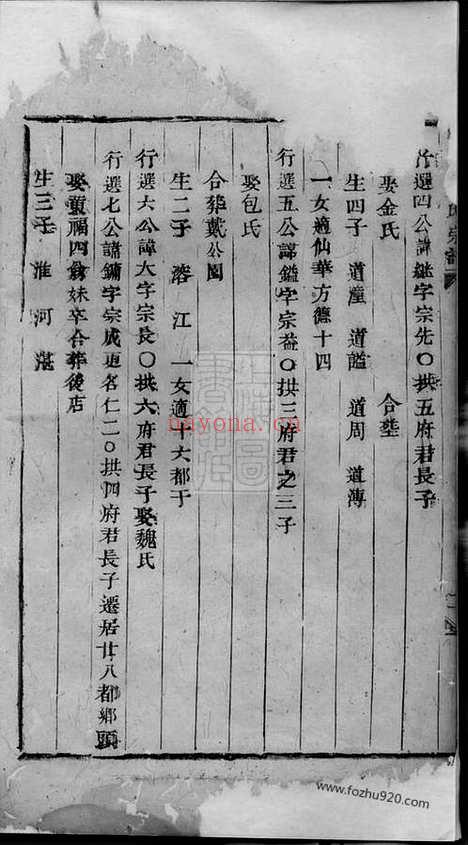 氏宗譜
行選四公諱继字宗先〇拱五府君長子
娶金氏 合塟
生四子 道潼 道謚 道周 道溥
一女適仙華方德十四
行選五公諱鎰字宗益〇拱三府君之三子
娶包氏
合葬戴公園
生二子 溶 江 一女適十六都于
行選六公諱大字宗長〇拱六府君長子娶魏氏
行選七公諱鏞字宗咸更名仁二〇拱四府君長子遷居廿八都鄉頭
娶賈福四翁妹卒合葬後店
生三子 淮 河 湛
nayona.cn
www.fozhu920.com